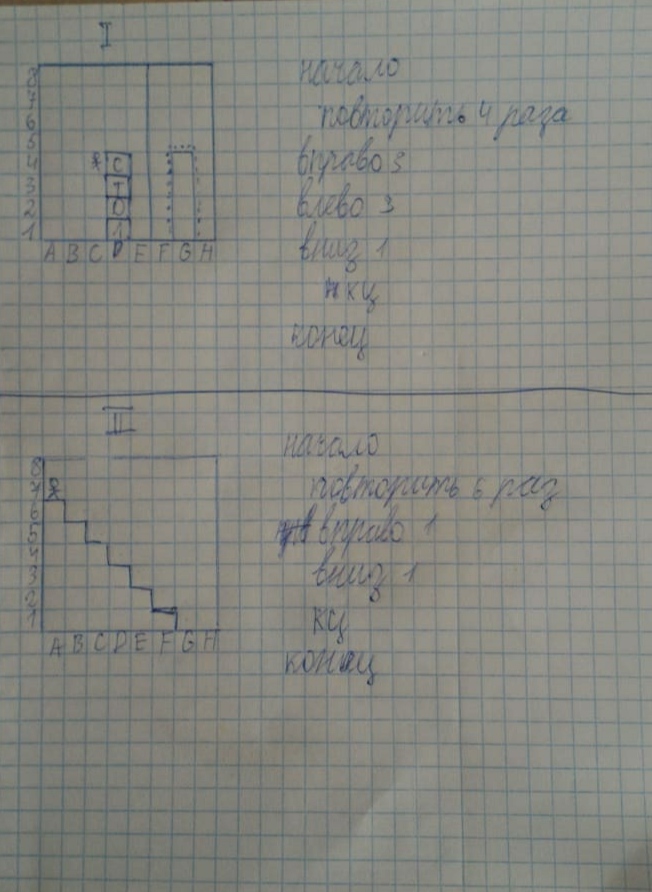 I
8
7
6
5
4 С
3 Т
2 О
1 1
A B C D E F G H
начало
повторить 4 раза
вправо 3
влево 3
вниз 1
кц
конец
II
8
7
6
5
4
3
2
1
A B C D E F G H
начало
повторить 6 раз
вправо 1
вниз 1
кц
конец